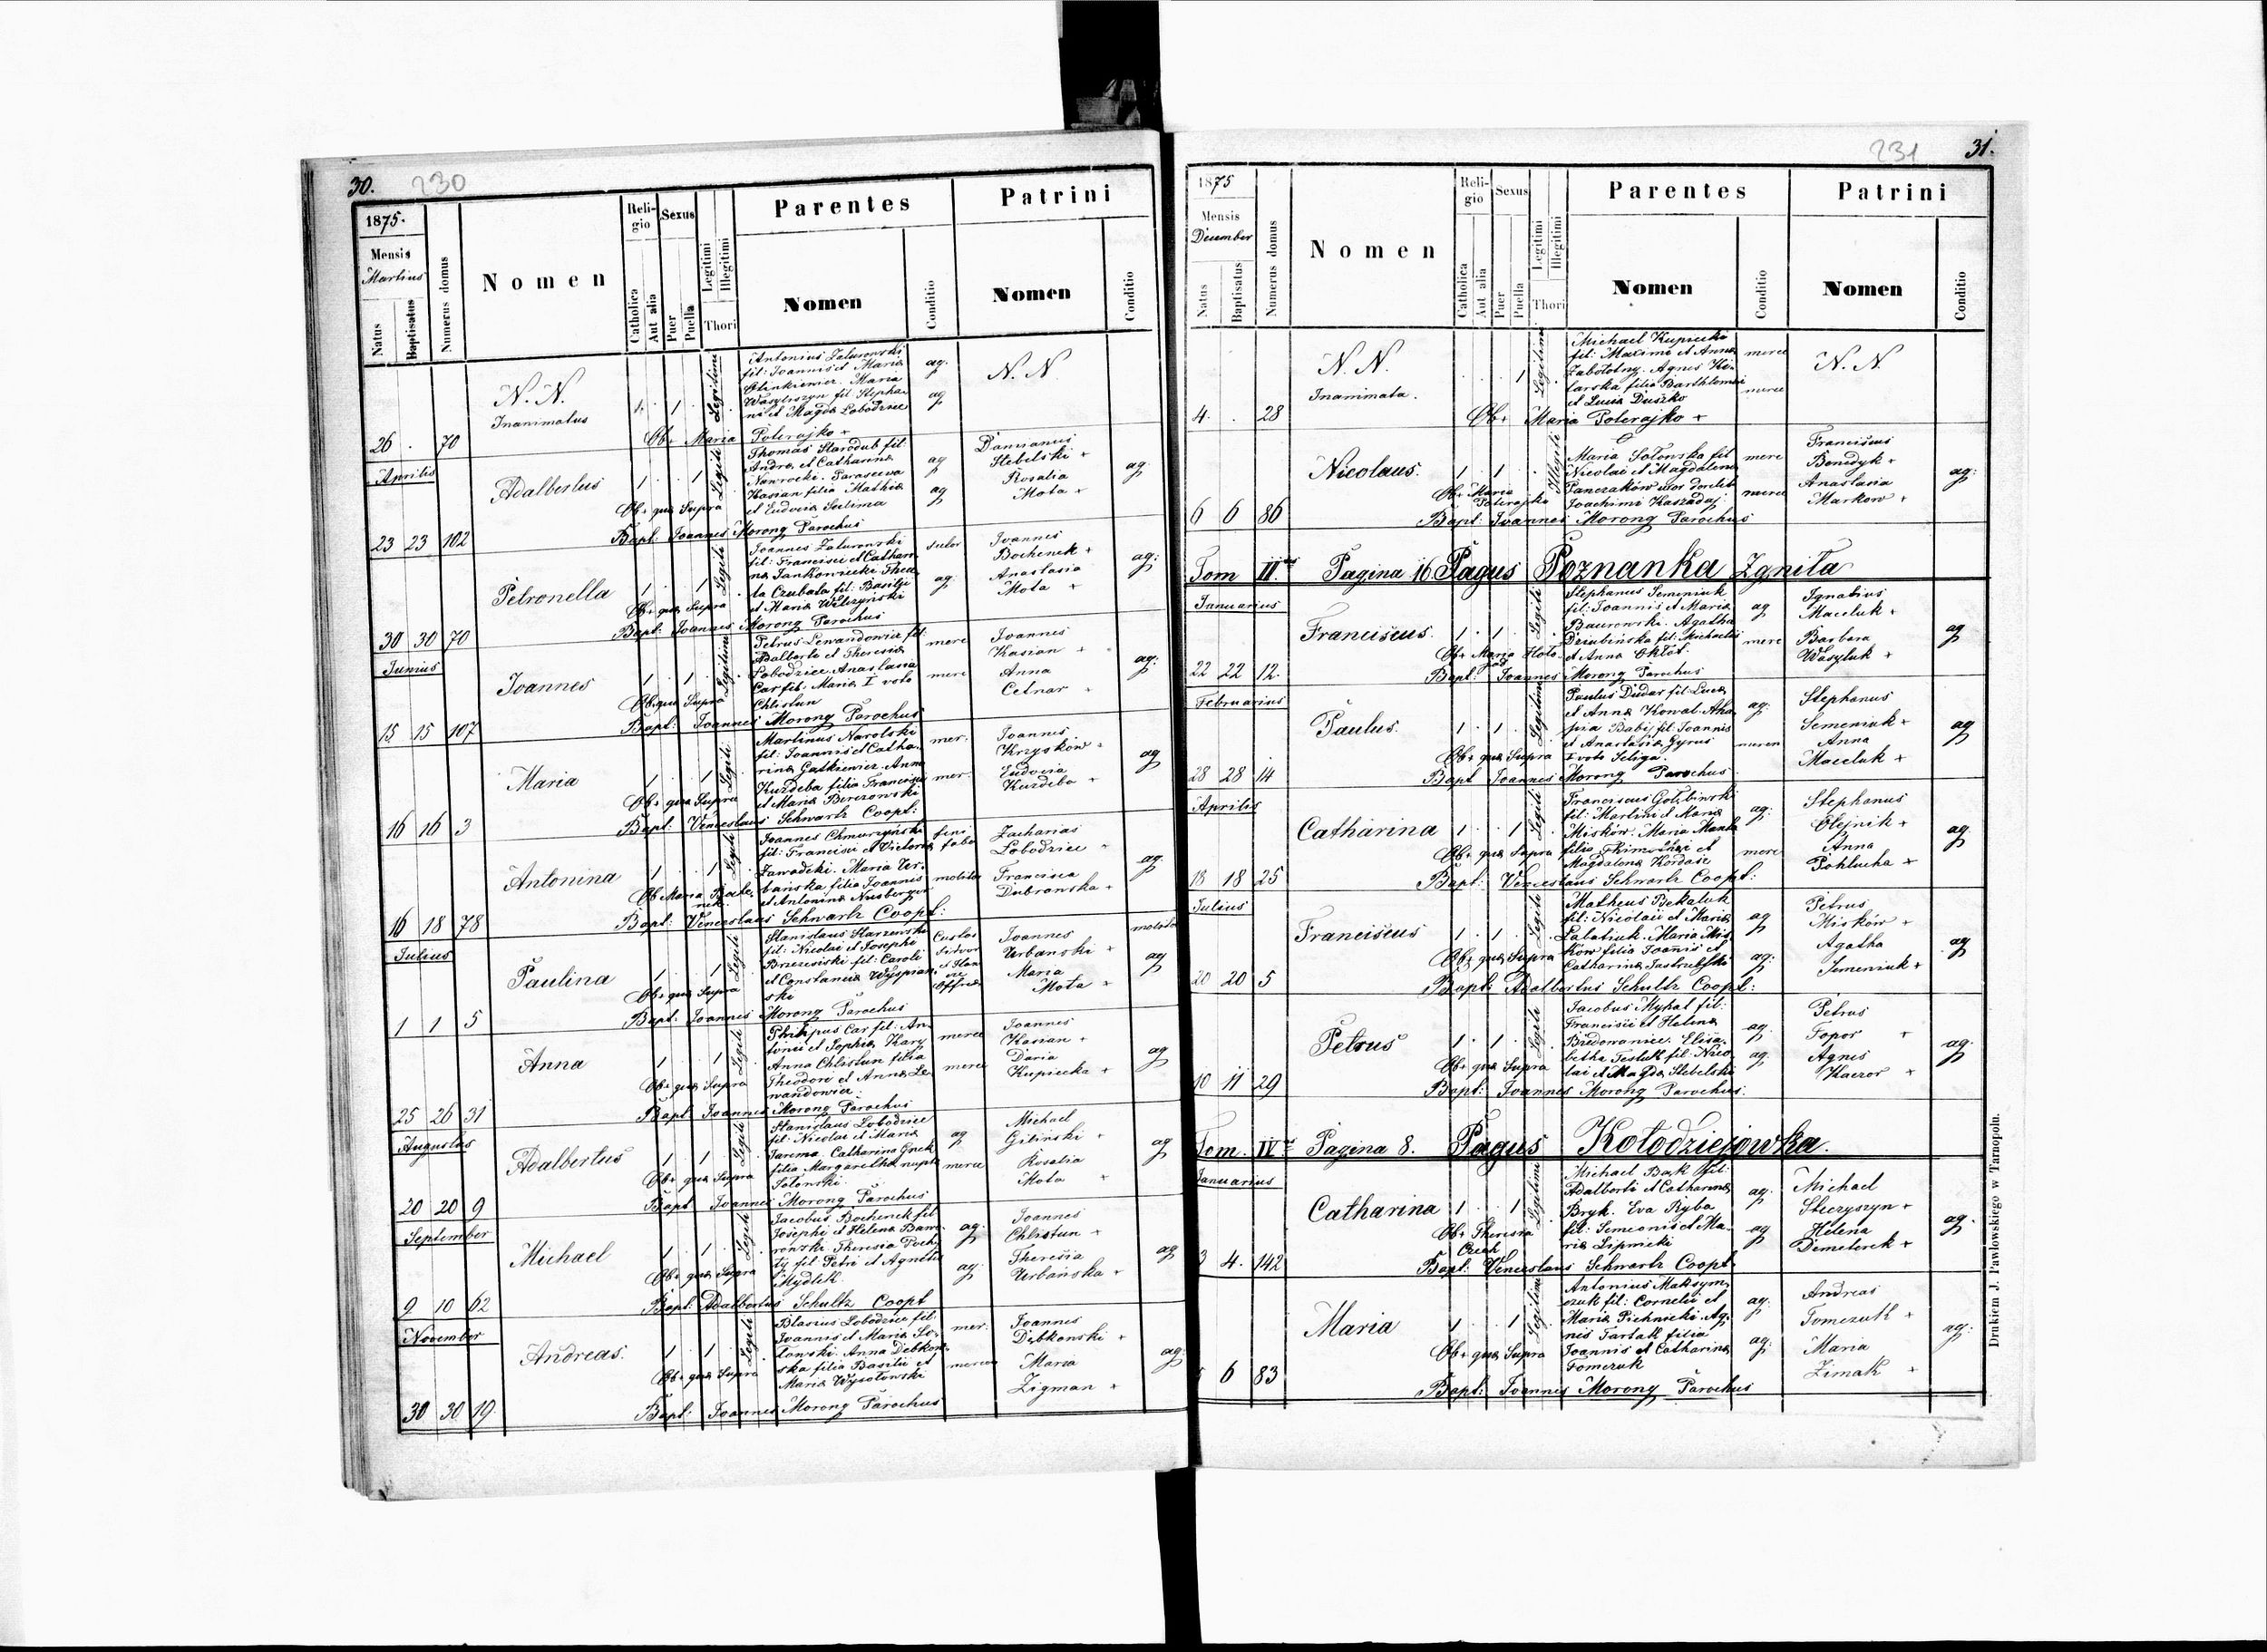 30. 230
1875.
Mensis
Martius
Natus
Baptisatus
Numerus domus
Nomen
Religio
Catholica
Aut alia
Sexus
Puer
Puella
Legitimi
Illegitimi
Thori
Parentes
Nomen
Conditio
Patrini
Nomen
Conditio
26 . 70
N. N.
Inanimatus
1. 1 Legitimi
Antonius Zalurowski
fil: Joannis et Maria
Slinkiewicz. Maria
Wasylyszyn fil Stepha
ni et Magda Lobodziec
ag.
ag
N. N.
Ob+ Maria Poterajko +
Aprilis
23 23 102
Adalbertus
1 1 Legiti
Thomas Starodub fil
Andrea et Catharina
Nawrocki. Parasceva
Kasian filia Mathia
et Eudoxia Sulima
ag
ag
Damianus
Stebelski +
Rosalia
Mota +
ag
Ob+ qua Supra
Bapt: Joannes Morong Parochus
30 30 70
Petronella
1 1 Legiti
Joannes Zalurowski
fil: Francisci et Cathari
na Jankowiecki Thec
la Czubata fil: Basilii
et Maria Welizynski
sutor
ag.
Joannes
Bochenek +
Anastasia
Mota +
ag:
Ob+ qua Supra
Bapt: Joannes Morong Parochus
Junius
15 15 107
Joannes
1 1 Legitimi
Petrus Lewandowicz fil:
Adalberti et Theresia
Lobodziec Anastasia
Car fil: Maria I voto
Chlistun
merc
merc
Joannes
Kasian +
Anna
Cetnar +
ag:
Ob+ qua Supra
Bapt: Joannes Morong Parochus
16 16 3
Maria
1 1 Legiti
Martinus Narolski
fil: Joannis et Catha
rina Gatkiewicz Anna
Kuzdeba filia Francisci
et Maria Berezowski
mer.
mer.
Joannes
Krzysków +
Eudoxia
Kuzdeba +
ag
Ob+ qua Supra
Bapt: Venceslaus Schwartz Coopt:
16 18 78
Antonina
1 1 Legiti
Joannes Chmurzyński
fil: Francisci et Victoria
Zawadzki. Maria Ur-
bańska filia Joannis
et Antonina Nusberger
molitor
Zacharias
Lobodziec +
Francisca
Dubranska +
ag.
Ob Maria Boche
nek
Bapt: Venceslaus Schwartz Coopt:
Julius
1 1 5
Paulina
1 1 Legiti
Stanislaus Starzenski
fil: Nicolai et Josephi
Brzezinski fil: Caroli
et Constancia Wyspian
ski
Custos
Joannes
Urbanski +
Maria
Mota +
molitor
ag
Ob+ qua Supra
Bapt: Joannes Morong Parochus
25 26 31
Anna
1 1 Legiti
Philippus Car fil: An-
tonii et Sophia Kary
Anna Chlistun filia
Theodori et Anna Le
wandowicz
merc
merc
Joannes
Kasian +
Daria
Kupiecka +
ag
Ob+ qua Supra
Bapt: Joannes Morong Parochus
Augustus
20 20 9
Adalbertus
1 1 Legiti
Stanislaus Lobodziec
fil: Nicolai et Maria
Jarema. Catharina Gnek
filia Margaretha nupta
Solonski
ag
merc
Michael
Gilinski +
Rosalia
Mota +
ag
Ob+ qua Supra
Bapt Joannes Morong Parochus
September
9 10 62
Michael
1 1 Legiti
Jacobus Bochenek fil
Josephi et Helena Baw
rowski. Theresia Poch
ty fil Petri et Agnetis
Mydlek
ag.
ag.
Joannes
Chlistun +
Theresia
Urbańska +
ag
Ob+ qua Supra
Bapt: Adalbertus Schultz Coopt
November
30 30 19
Andreas.
1 1 Legiti
Blasius Lobodziec fil:
Joannis et Maria So-
towski. Anna Debkow
ska filia Basilii et
Maria Wysotowski
mer.
merc
Joannes
Debkowski +
Maria
Zigman +
ag:
Ob+ qua Supra
Bapt: Joannes Morong Parochus
231 31.
1875
Mensis
December
Natus
Baptisatus
Numerus domus
Nomen
Religio
Catholica
Aut alia
Sexus
Puer
Puella
Legitimi
Illegitimi
Thori
Parentes
Nomen
Conditio
Patrini
Nomen
Conditio
4. . 28
N. N.
Inanimata.
1 Legitimi
Michael Kupiecki
fil: Maximi et Anna
Zabolotny. Agnes Ki-
larska filia Barthlomei
et Lucia Duszko
merc
merc
N. N.
Ob+ Maria Poterajko +
6 6 86
Nicolaus.
1 1 Illegiti
Maria Sotowska fil
Nicolai et Magdalena
Panczaków uxor derelict
Joachimi Kaszadaj
merc
merc
Franciscus
Benedyk +
Anastasia
Markow +
ag:
Ob+ Maria
Poterajko
Bapt: Joannes Morong Parochus
Tom III Pagina 16 Pagus Poznanka Zgnita
Januarius
22 22 12.
Franciscus.
1 1 Legiti
Stephanus Semeniuk
fil: Joannis et Maria
Baurowski. Agatha
Dziubińska fil: Michaelis
et Anna Oktot
ag
merc
Ignatius
Maceluk +
Barbara
Wasyluk +
ag
Ob+ Maria Hoto-
Bapt: Joannes Morong Parochus
Februarius
28 28 14
Paulus.
1 1 Legitimi
Paulus Dudar fil: Luca
et Anna Kowal. Aha
pia Babij fil: Joannis
et Anastasia Gyrus
I voto Seliga.
ag.
Stephanus
Semeniuk +
Anna
Maceluk +
ag
Ob+ qua Supra
Bapt Joannes Morong Parochus
Aprilis
18 18 25
Catharina
1 1 Legiti
Franciscus Gotebinski
fil: Martini et Maria
Misków. Maria Manka
filia Thimothei et
Magdalena Kordasz
ag:
merc
Stephanus
Olejnik +
Anna
Pohlucha +
ag
Ob+ qua Supra
Bapt: Venceslaus Schwartz Coopt:
Julius
20 20 5
Franciscus
1 1 Legiti
Matheus Bekaluk
fil: Nicolai et Maria
Labatiuk. Maria Mis
ków filia Joannis et
Catharina Jastrubski
ag
ag:
Petrus
Misków +
Agatha
Semeniuk +
ag
Ob+ qua Supra
Bapt: Adalbertus Schultz Coopt:
10 11 29
Petrus
1 1 Legiti
Jacobus Myhal fil:
Francisci et Helena
Biedowanicz. Elisa-
betha Testuk fil: Nico
lai et Magda Stebelski
ag.
ag.
Petrus
Topor +
Agnes
Kaczor +
ag.
Ob+ qua Supra
Bapt: Joannes Morong Parochus.
Tom. IV Pagina 8. Pagus Kołodziejówka.
Januarius
3 4. 142
Catharina
1 1 Legitimi
Michael Bryk fil:
Adalberti et Catharina
Bryk. Eva Ryba
fil: Semeonis et Ma-
ria Lipnicki
ag.
ag
Michael
Steczyszyn +
Helena
Demeterck +
ag.
Ob+ Theresia
Czech
Bapt: Venceslaus Schwartz Coopt
6 83
Maria
1 1 Legitimi
Antonius Maksym
czuk fil: Cornelii et
Maria Pichnicki. Ag-
nis Tartak filia
Joannis et Catharina
Tomczuk
ag.
ag:
Andreas
Tomczuk +
Maria
Zimak +
ag:
Ob+ qua Supra
Bapt: Joannes Morong Parochus
Drukiem J. Pawłowskiego w Tarnopolu.